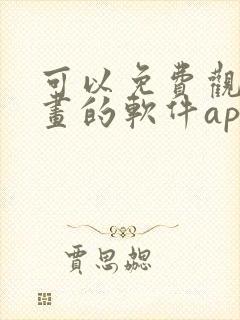 可以免費觀
畫的軟件ap
賈思勰